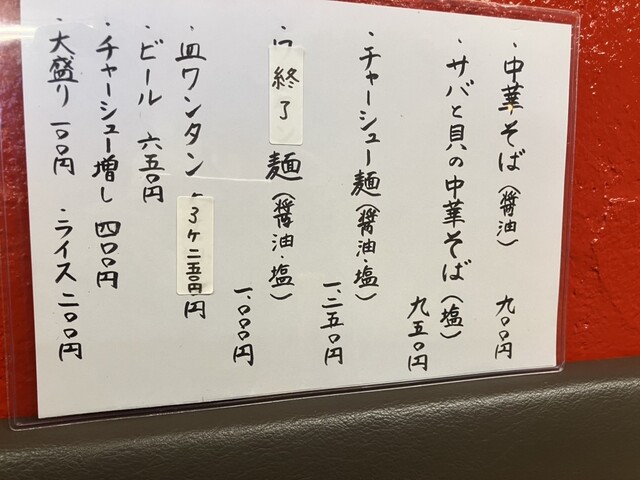 ・中華そば(醤油) 九〇〇円
・サバと貝の中華そば(塩) 九五〇円
・チャーシュー麺(醤油・塩) 一、二五〇円
・終了麺(醤油・塩) 一、〇〇〇円
・皿ワンタン 3ケ二五〇円円
・ビール 六五〇円
・チャーシュー増し 四〇〇円
・大盛り 一〇〇円 ・ライス 二〇〇円